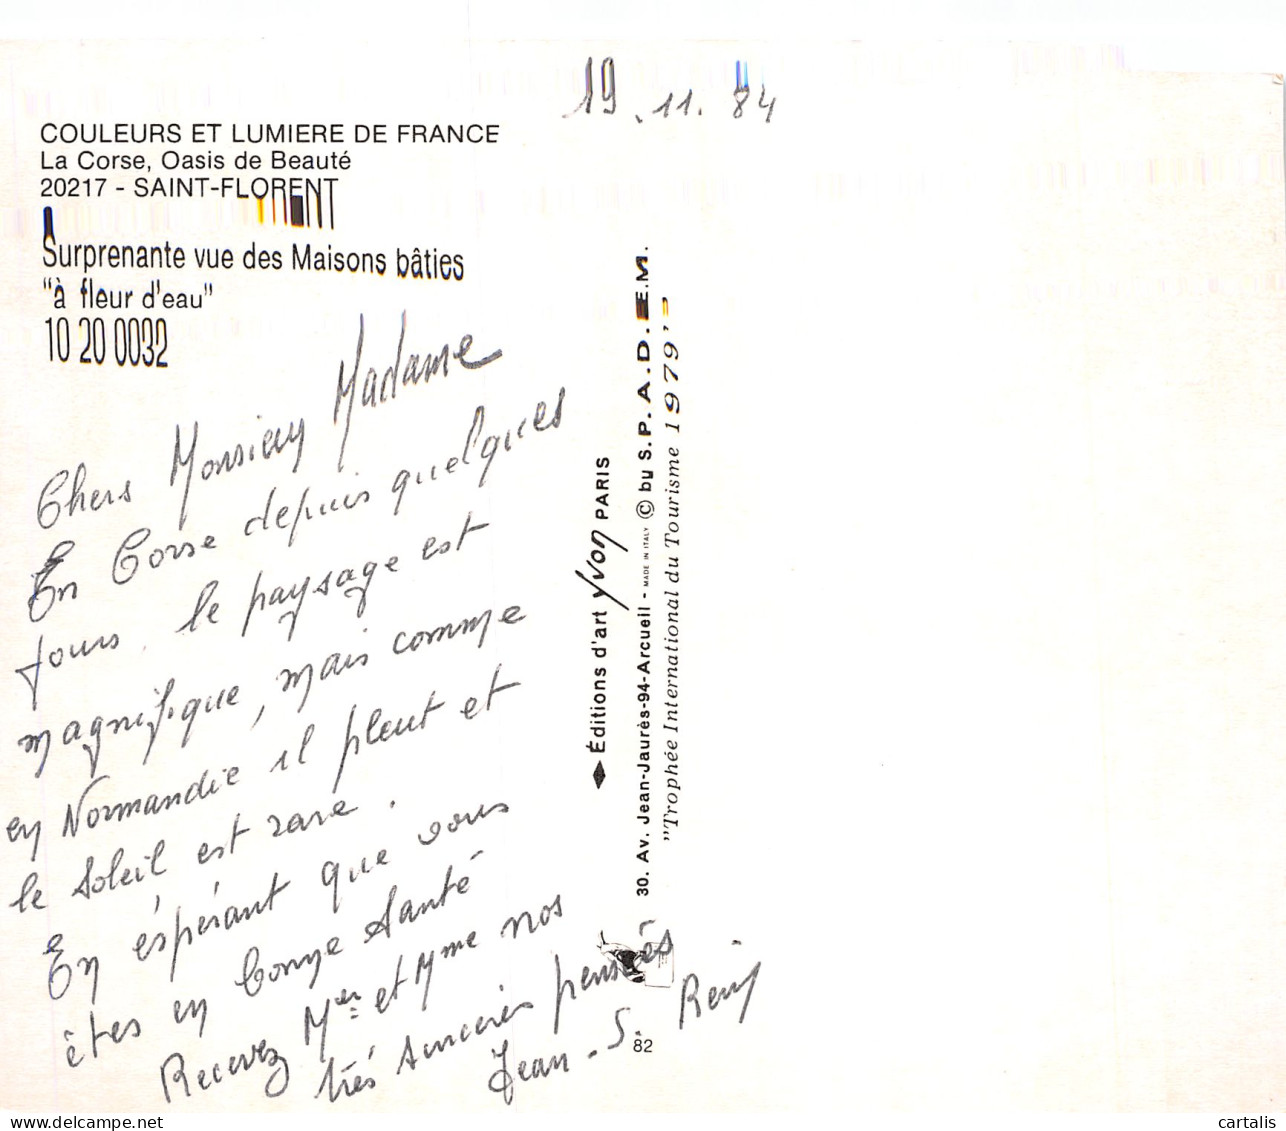 19.11.84
COULEURS ET LUMIERE DE FRANCE
La Corse, Oasis de Beauté
20217 - SAINT-FLORENT
Surprenante vue des Maisons bâties
"à fleur d'eau"
10 20 0032
Chers Monsieur Madame
En Corse depuis quelques
jours. le paysage est
magnifique, mais comme
en Normandie il pleut et
le soleil est rare.
En éspérant que vous
êtes en bonne santé
Recevez Mer et Mme nos
très sincères pensées
Jean-S.
Éditions d'art Yvon PARIS
30. Av. Jean-Jaurès-94-Arcueil - MADE IN ITALY © by S.P.A.D.E.M.
"Trophée International du Tourisme 1979"
82
cartalis
www.delcampe.net